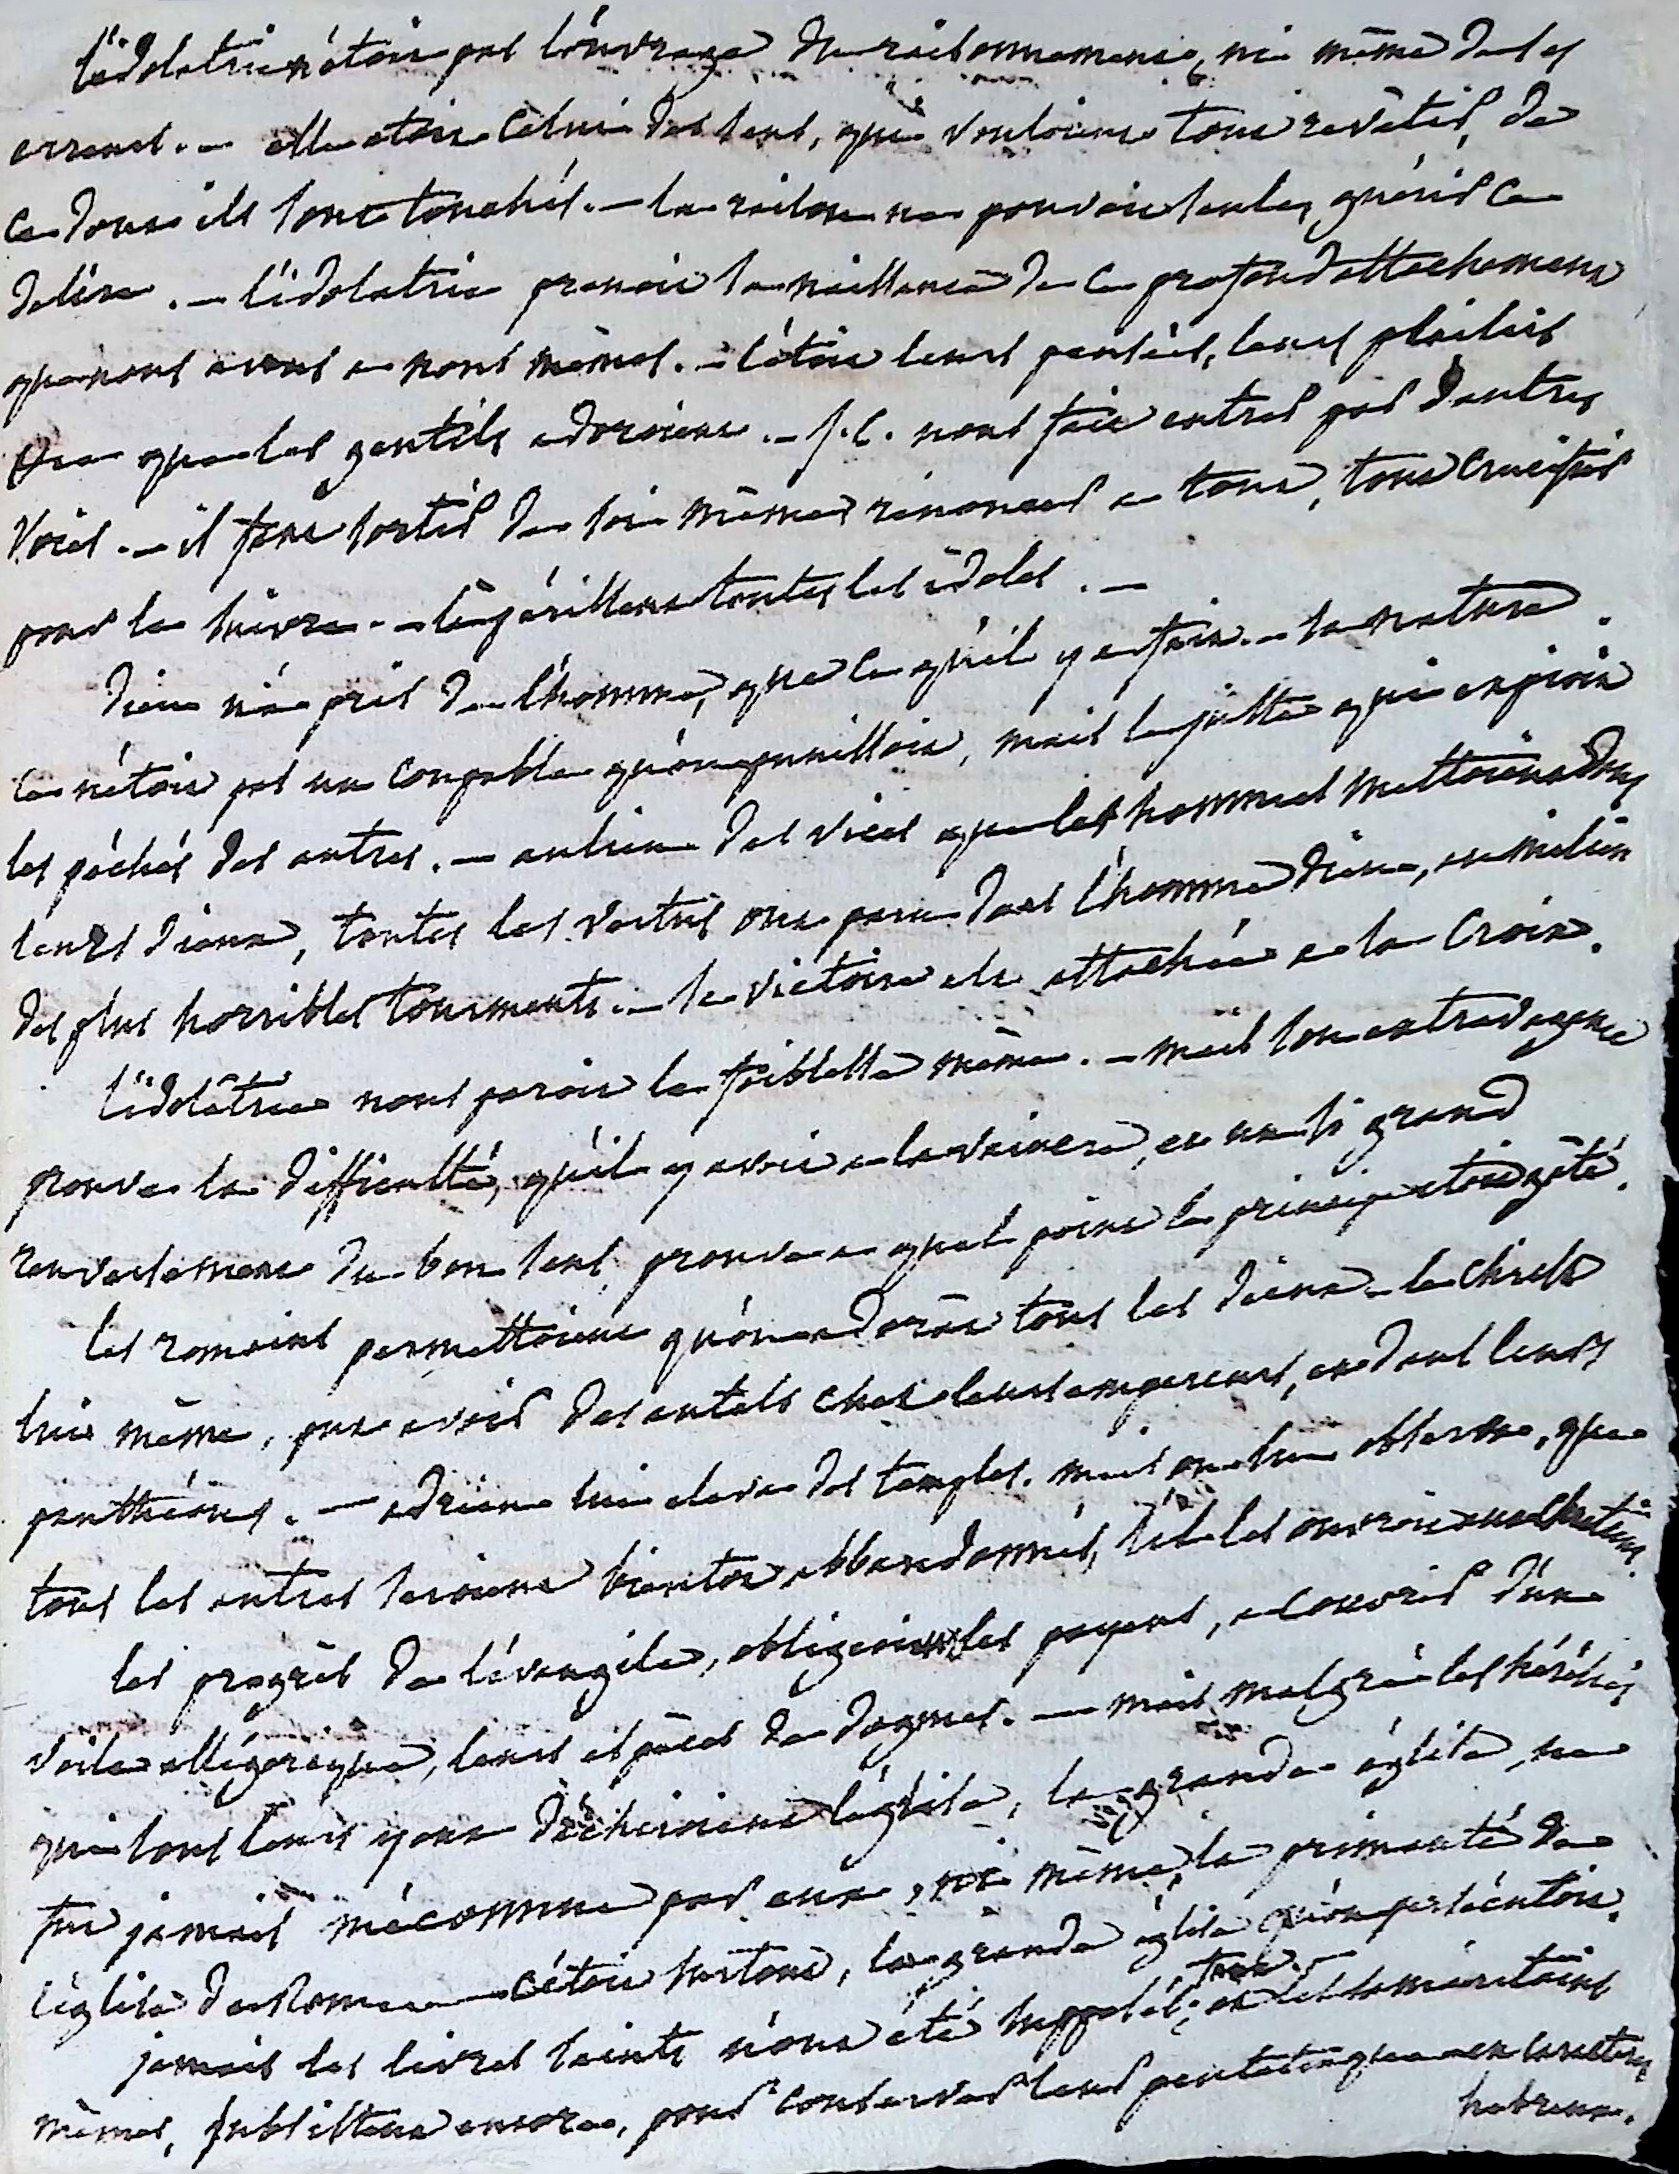 l'idolatrie n'étoit pas l'ouvrage du raisonnement, ni même de les
erreurs. — elle etoit celui des sens, qui vouloient tout revêtir, de
ce dont ils sont touchés. — la raison ne pouvoit seule, guérir ce
delire. — l'idolatrie prenoit sa naissance de ce profond attachement
que nous avons a nous mêmes. — c'étoit leurs pensées, leurs plaisirs
que les gentils adoroient. — J.C. nous fait entrer par d'autres
voies. — il faut sortir de soi même, renoncer a tout, tout crucifier
pour le suivre. — là périssent toutes les idoles. —
Dieu n'a pris de l'homme, que ce qu'il y a fait. — sa nature.
ce n'étoit pas un coupable qu'on punissoit, mais le juste qui expioit
les péchés des autres. — au lieu des vices que les hommes mettoient dans
leurs dieux, toutes les vertus ont paru dans l'homme Dieu, au milieu
des plus horribles tourments. — sa victoire est attachée a la Croix.
l'idolâtrie nous paroit la foiblesse même. — mais son extravagance
prouve la difficulté, qu'il y avoit a la vaincre, et un si grand
renversement du bon sens, prouve a quel point le principe etoit gâté.
les romains permettoient qu'on adorât tous les dieux. le Christ
lui même, put avoir des autels chez leurs empereurs, et dans leurs
panthéons. — adrien lui eleva des temples. mais on lui observa, que
tous les autres seroient bientot abbandonnés, s'il les ouvroit aux Chretiens.
les progrès de l'évangile, obligeoient les payens, a couvrir d'un
voile allégorique, leurs especes de dogmes. — mais malgré les hérésies
qui sous leurs yeux déchiroient l'église, la grande église, ne
fut jamais méconnue par eux, ni même, la primauté de
l'église de Rome. — c'étoit surtout, la grande église qu'on persécutoit.
jamais les livres saints n'ont été supposés; et les samaritains
mêmes, subsistent encore, pour conserver leur pentateuque en caracteres
hebreux.